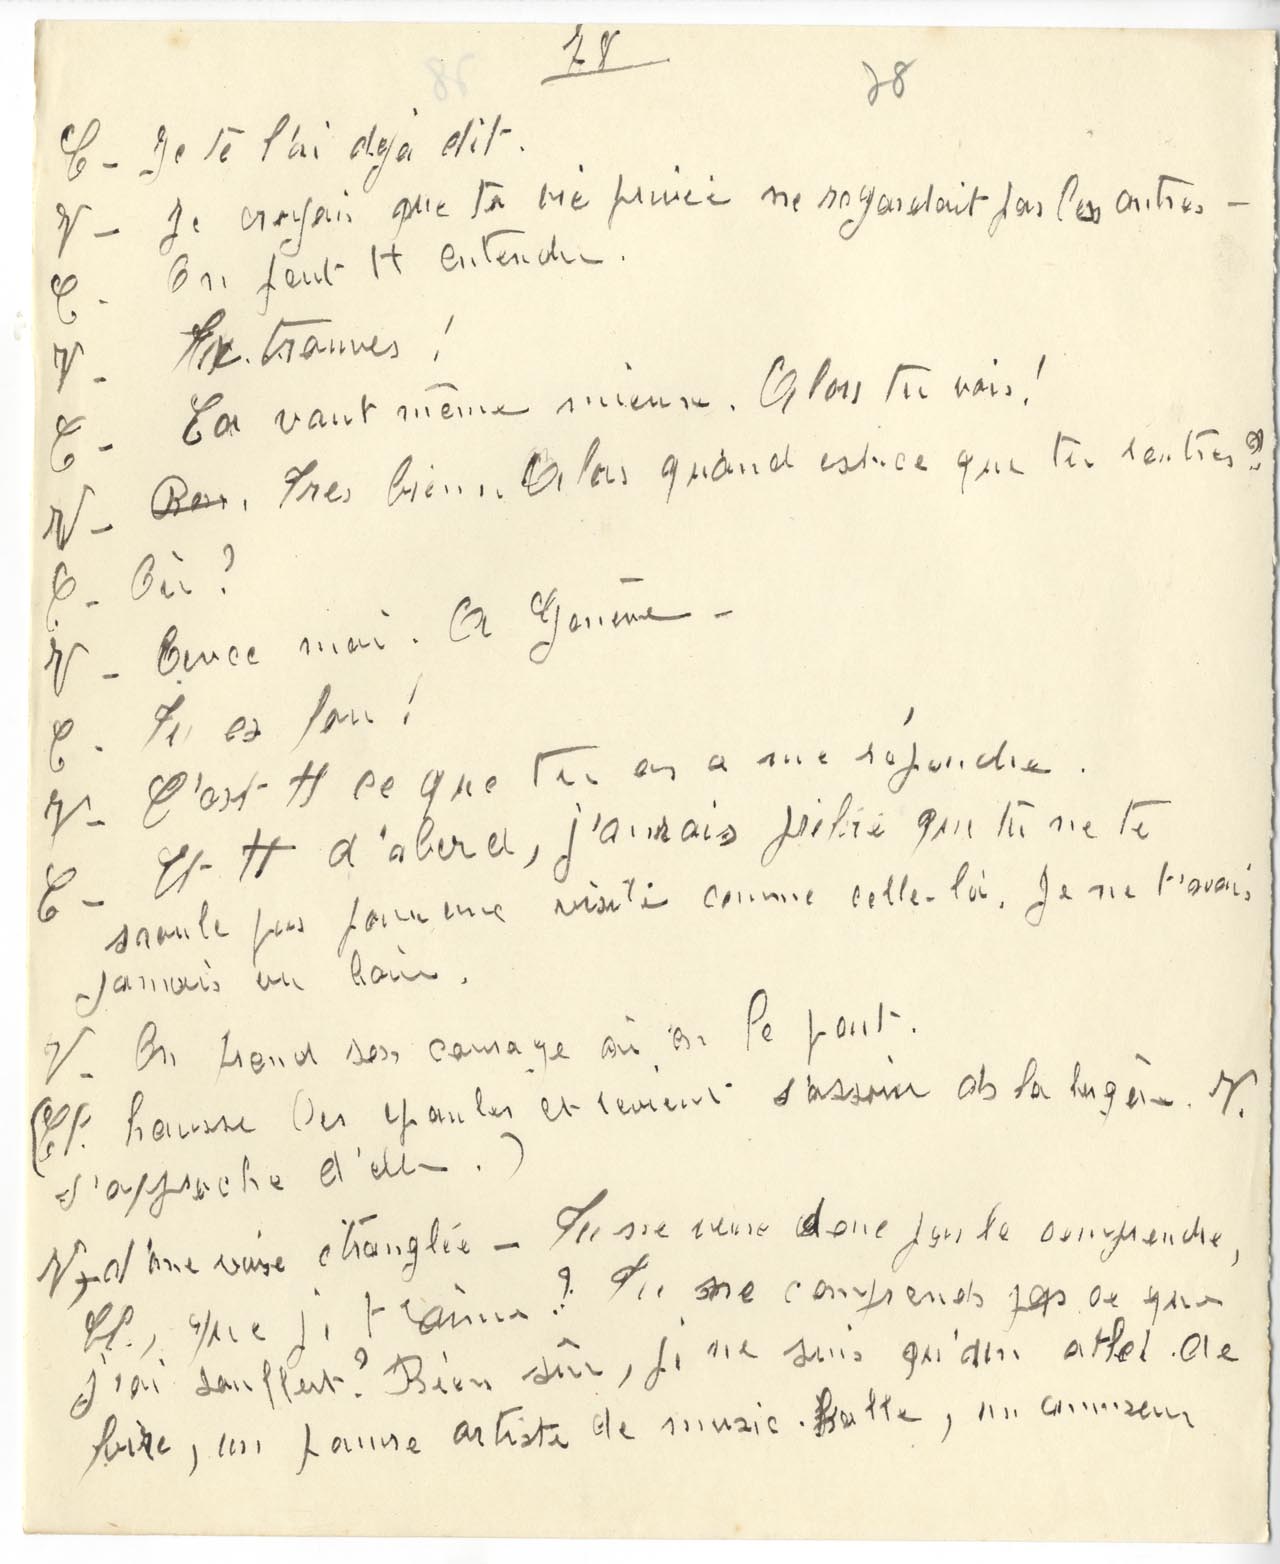 78
78
C - Je te l'ai déjà dit.
V - Je croyais que ta vie privée ne regardait pas les autres -
C - On peut tt entendre.
V - Tu trouves !
C - Ca vaut même mieux. Alors tu vois !
V - Bon. Tres bien. Alors quand est-ce que tu rentres ?
C - Où ?
V - Avec moi. A Genève -
C - Tu es fou !
V - C'est tt ce que tu as a me répondre.
C - Et tt d'abord, j'aurais préféré que tu ne te
soûle pas pour une visite comme celle-là. Je ne t'avais
jamais vu boire.
V - On prend son courage où on le peut.
(Cl. hausse les épaules et revient s'assoir ds la bergère. V.
s'approche d'elle.)
V, d'une voix étranglée - Tu ne veux donc pas le comprendre,
Cl., que je t'aime ? Tu ne comprends pas ce que
j'ai souffert ? Bien sûr, je ne suis qu'un de
foire, un pauvre artiste de music-halle, un amuseur